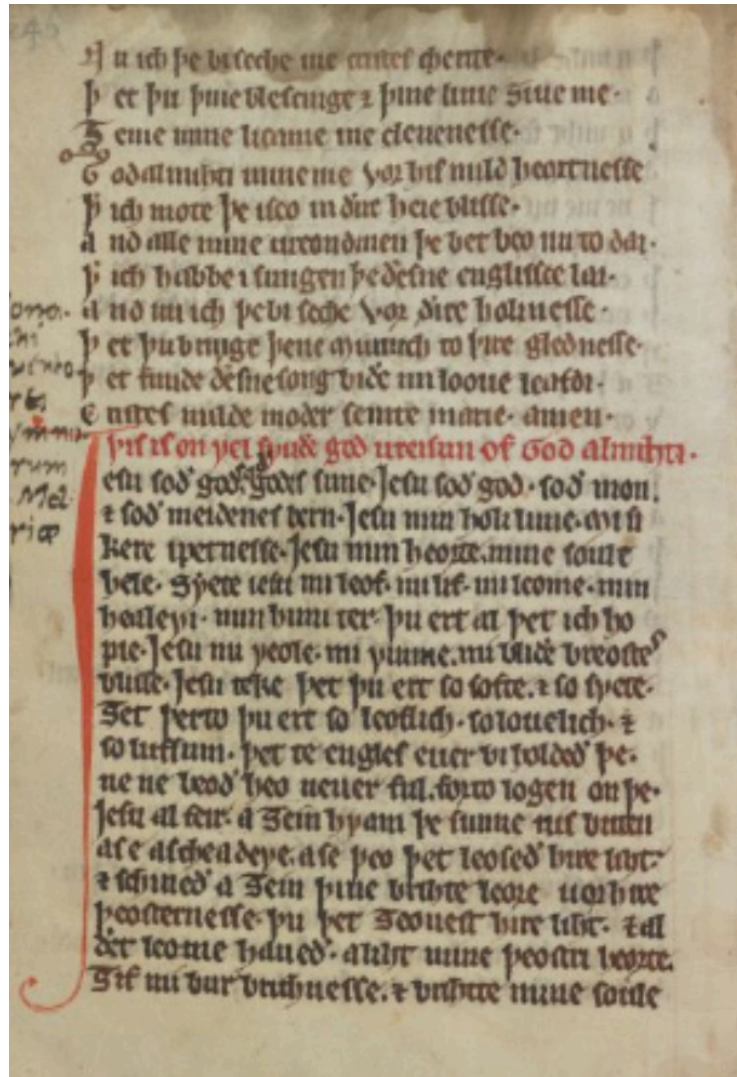 Nu ich þe biseche ine cristes cherite.
þet þu þine blescinge ⁊ þine luue ȝiue me.
Ȝeme mine licame ine clenenesse.
Godalmihti unne me vor his mild heortnesse
þ̄ ich mote þe iseo in ðire heie blisse.
and alle mine ureondmen þe bet beo nu to dai.
þ̄ ich habbe isungen þe ðesne englissce lai.
and nu ich þe bi seche vor ðire holinesse.
þet þu bringe þene munuch to þire glednesse.
þet funde ðesne song bi ðe mi looue leafdi.
cristes milde moder seinte marie. amen.
rum
riæ
Þis is on ƿel sƿuðe god ureisun of God almihti.
Iesu soð god. godes sune. Iesu soð god. soð mon.
⁊ soð meidenes bern. Iesu min holi luue. mi si
kere sƿetnesse. Iesu min heorte. mine soule
hele. Sƿete iesu mi leof. mi lif. mi leome. min
healeƿi. min huni ter. þu ert al þet ich ho
pie. Iesu mi ƿeole. mi ƿunne. mi bliðe breostes
blisse. Iesu teke þet þu ert so softe. ⁊ so sƿete.
ȝet þerto þu ert so leoflich. so louelich. ⁊
so lufsum. þet te engles euer bi holdeð þe.
ne ne beoð heo neuer ful. forto logen on þe.
Iesu al feir. a ȝein hƿam þe sunne nis buten
ase a scheadeƿe. ase þeo þet leoseð hire liht.
⁊ schmeð a ȝein þine brihte leore uor hire
þeosternesse. þu þet ȝeouest hire liht. ⁊ al
ðet leome haueð. aliht mine þeostri heorte.
ȝif mi bur brihtnesse. ⁊ brihte mine soule